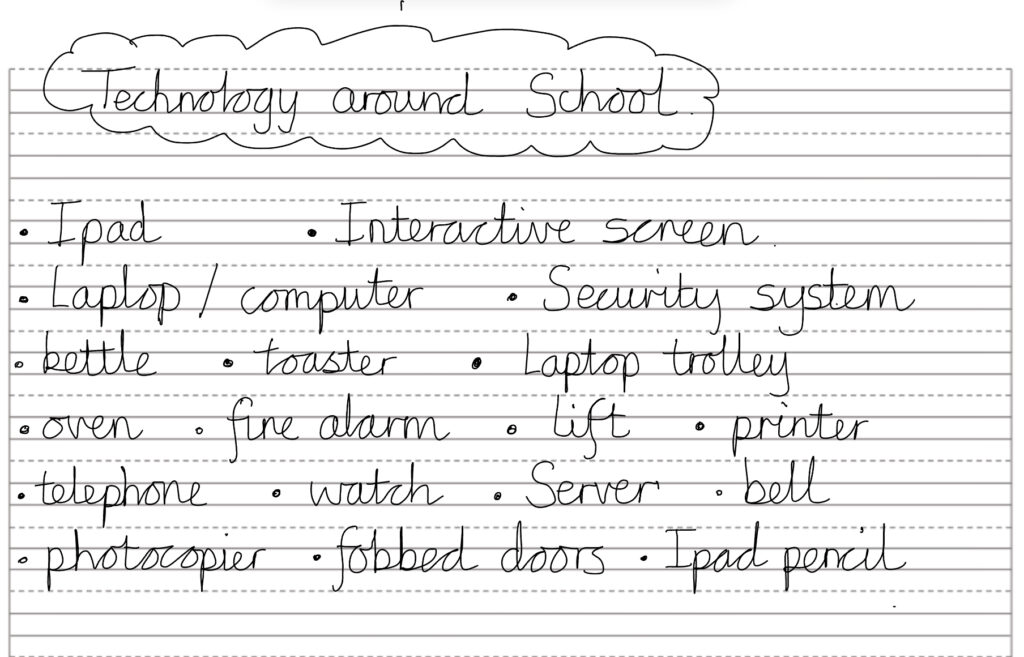 Technology around School.
• Ipad • Interactive screen.
• Laptop / computer • Security system
• kettle • toaster • Laptop trolley
• oven • fire alarm • Lift • printer
• telephone • watch • Server • bell
• photocopier • fobbed doors • Ipad pencil